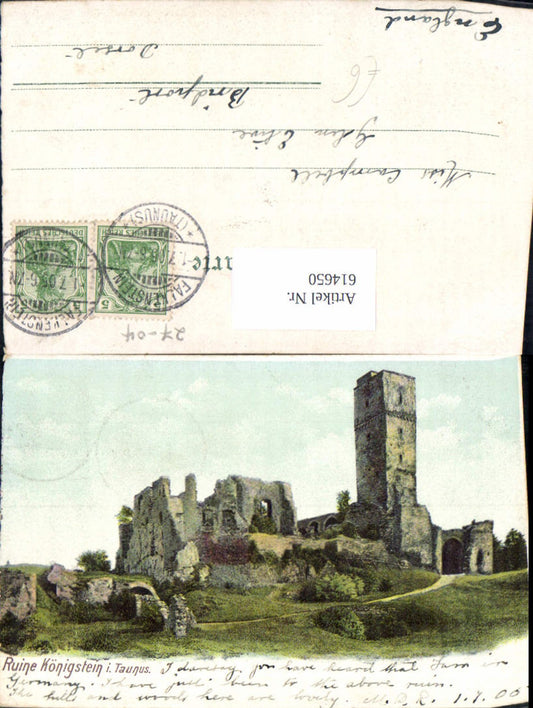 England
Dorset
Bridport
£6
Glen Clive
Miss Campbell
DEUTSCHES REICH
5
DEUTSCHES REICH
5
FALKENSTEIN
(TAUNUS)
7.05.6-7N
614650
Artikel Nr.
27-04
Ruine Königstein i. Taunus.
I daresay you have heard that I am in
Germany. I have just been to the above ruin.
The hills and woods here are lovely. M.P.R. 1.7.05